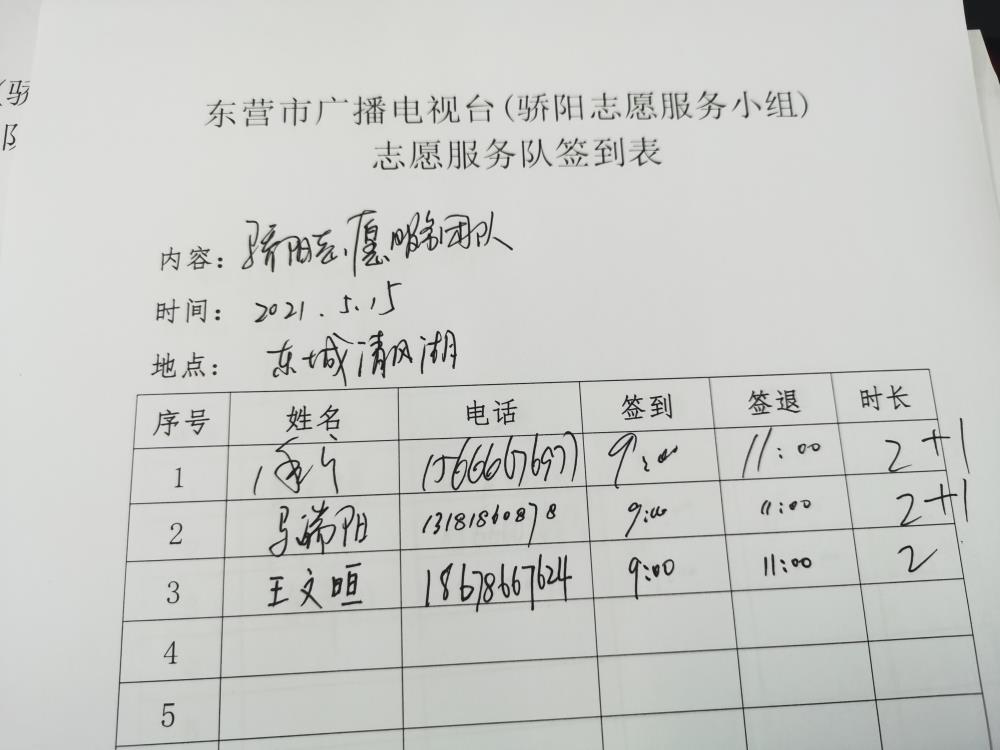 东营市广播电视台(骄阳志愿服务小组)
志愿服务队签到表
内容：骄阳志愿服务团队
时间：2021.5.15
地点：东城清风湖
序号 姓名 电话 签到 签退 时长
1 9:00 11:00 2+1
2 马瑞阳 13181860878 9:00 11:00 2+1
3 王文晅 18678667624 9:00 11:00 2
4
5